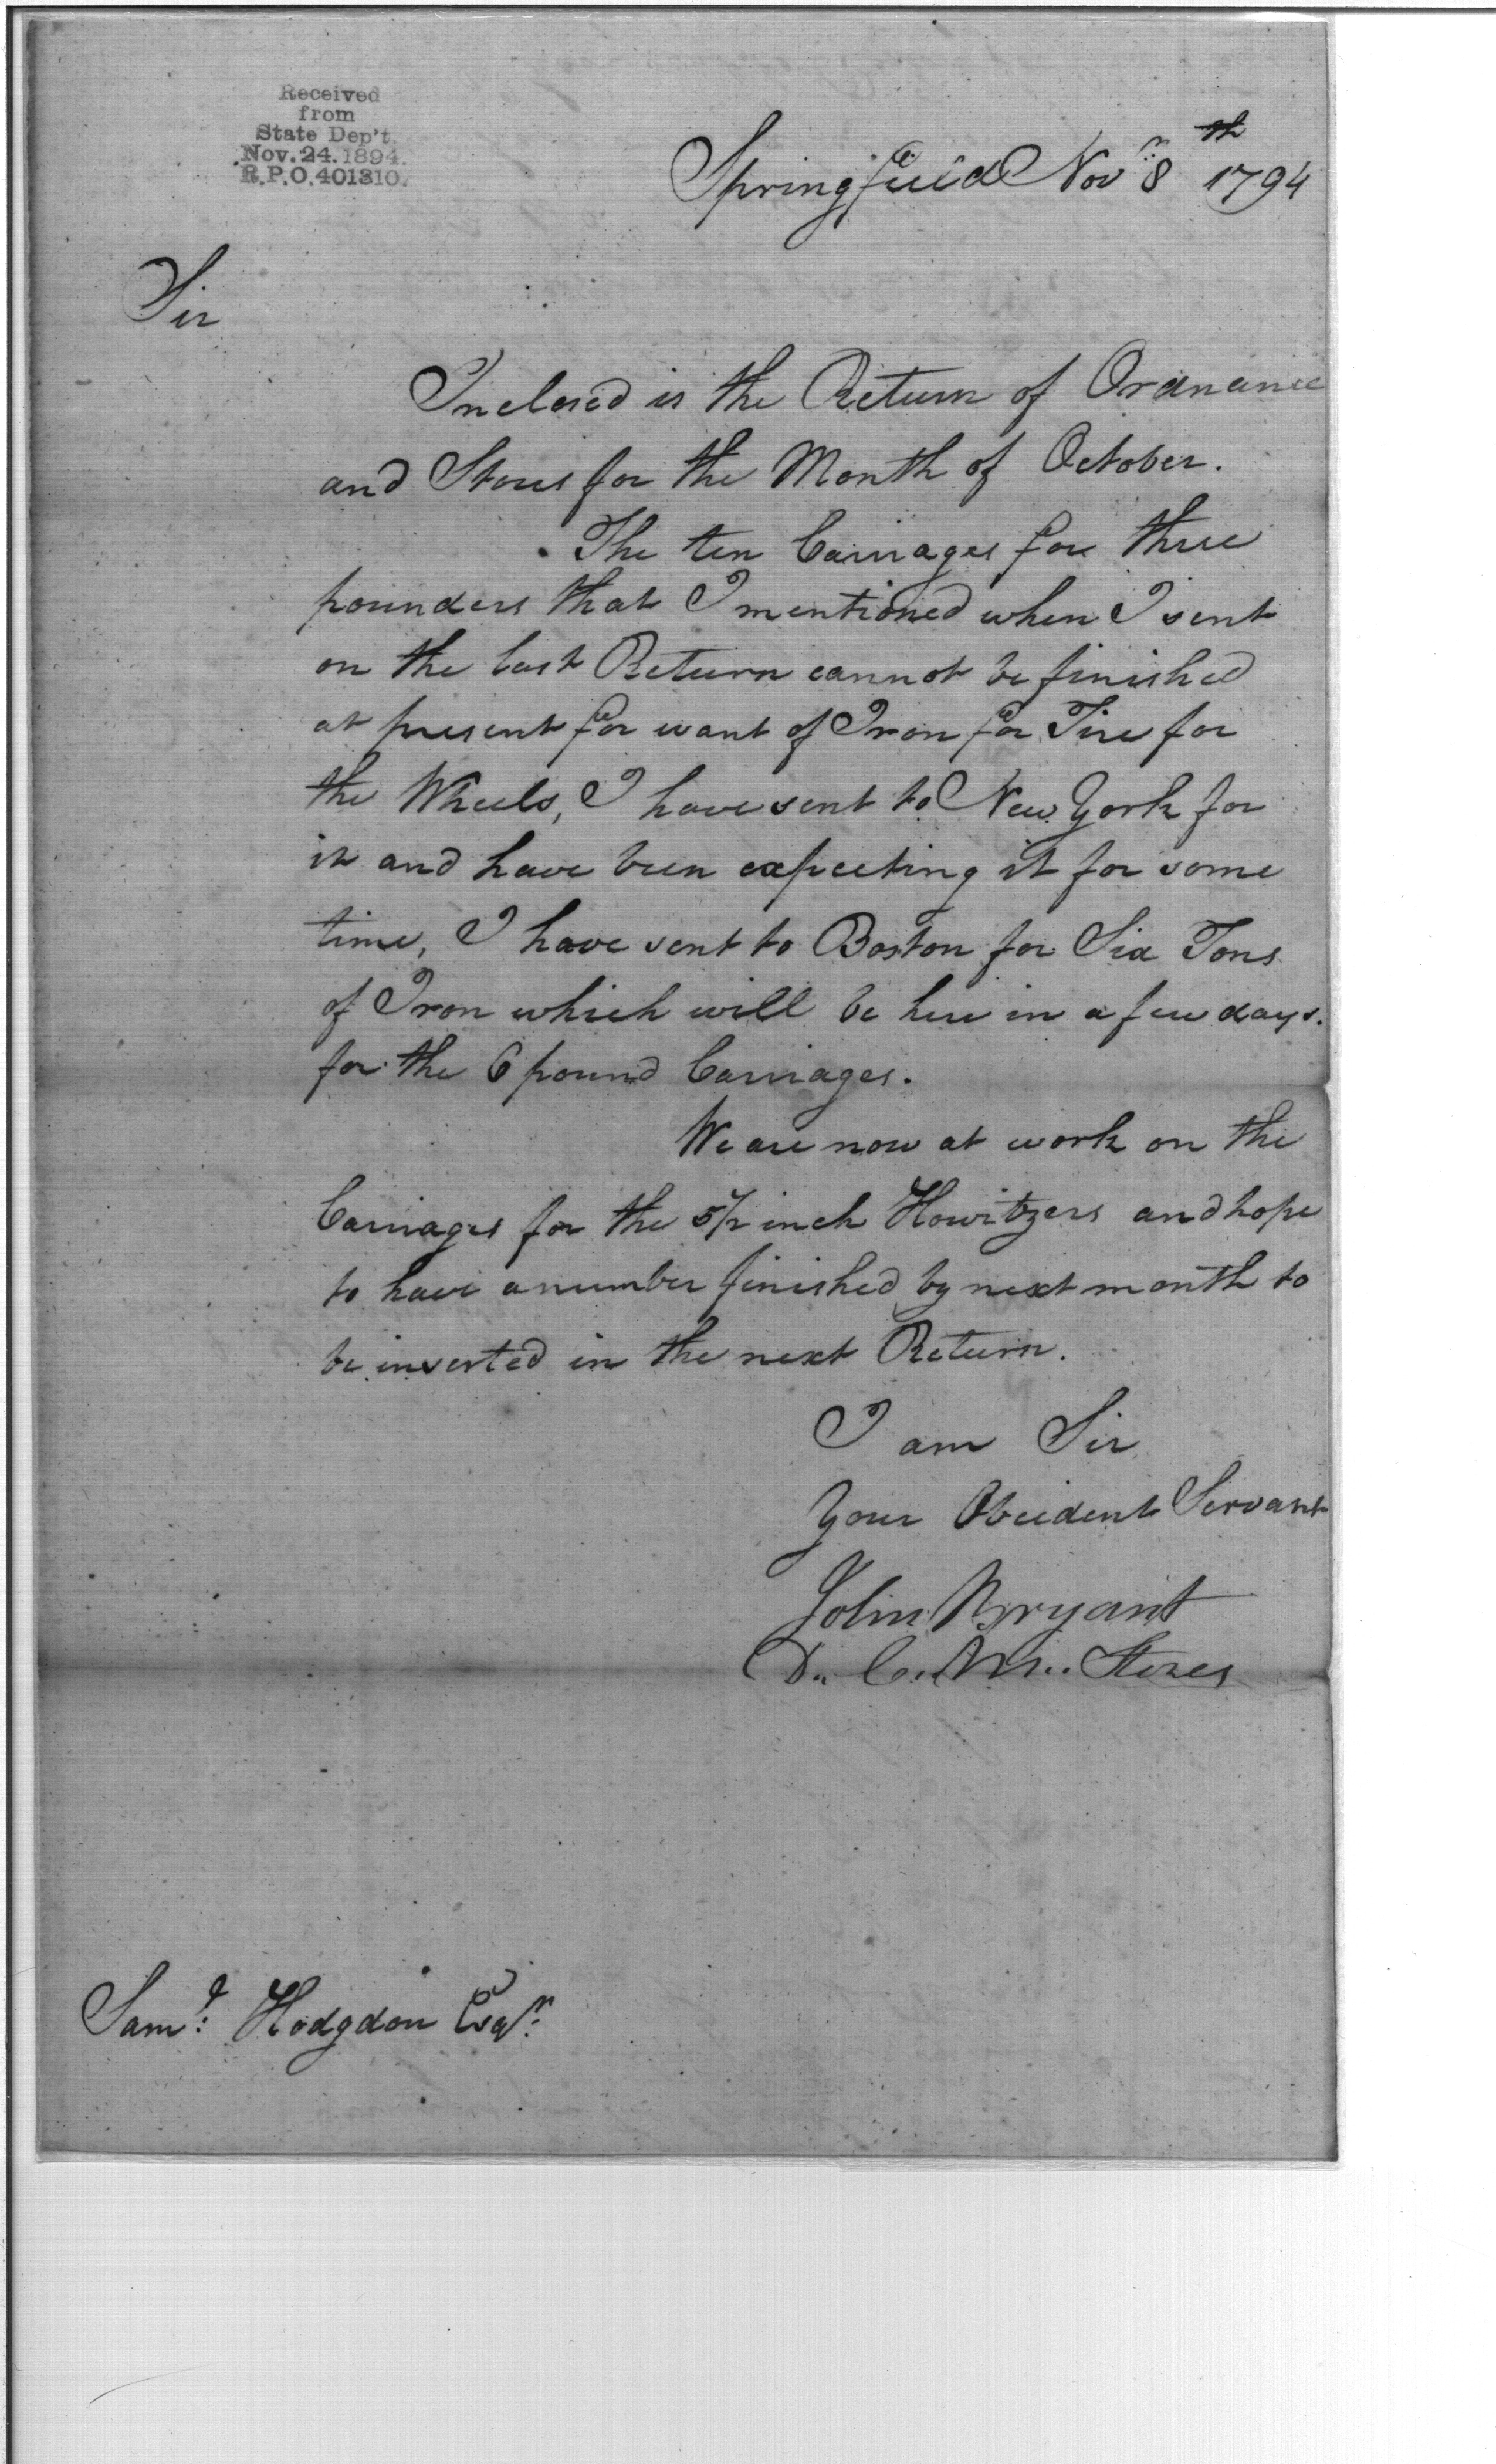 Received
from
State Dep't.
Nov. 24. 1894.
R.P.O. 401310.
Springfield Novr 8th 1794
Sir
Inclosed is the Return of Ordnance
and Stores for the Month of October.
The ten Carriages for three
pounders that I mentioned when I sent
on the last Return cannot be finished
at present for want of Iron for Tire for
the Wheels, I have sent to New York for
it and have been expecting it for some
time, I have sent to Boston for Six Tons
of Iron which will be here in a few days.
for the 6 pound Carriages.
We are now at work on the
Carriages for the 5 1/2 inch Howitzers and hope
to have a number finished by next month to
be inserted in the next Return.
I am Sir
Your Obeident Servant
John Bryant
D. C. M. Stores
Saml. Hodgdon Esqr.